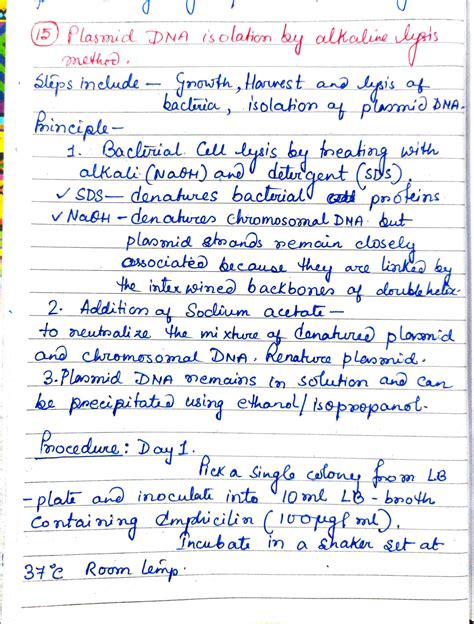 (15) Plasmid DNA isolation by alkaline lysis
method.
Steps include – Growth, Harvest and lysis of
bacteria, isolation of plasmid DNA.
Principle –
1. Bacterial Cell lysis by treating with
alkali (NaOH) and detergent (SDS).
✓ SDS – denatures bacterial proteins
✓ NaOH – denatures chromosomal DNA but
plasmid strands remain closely
associated because they are linked by
the interwined backbones of double helix.
2. Addition of Sodium acetate –
to neutralize the mixture of denatured plasmid
and chromosomal DNA. Renature plasmid.
3. Plasmid DNA remains in solution and can
be precipitated using ethanol/isopropanol.
Procedure: Day 1.
Pick a single colony from LB
-plate and inoculate into 10 ml LB-broth
Containing Ampicilin (100µg/ml).
Incubate in a shaker set at
37°C Room temp.